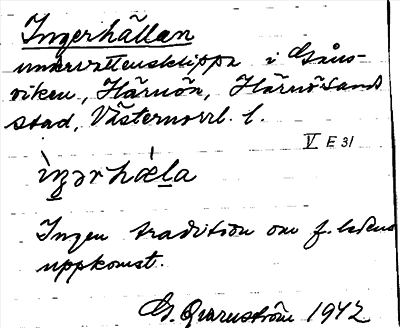 Ingerhällan
undervattensklippa i Gåns-
viken, Härnön, Härnösands
stad, Västernorrl. l.
V E 31
ìŋərhǽla
Ingen tradition om f. ledens
uppkomst.
G. Qvarnström 1942